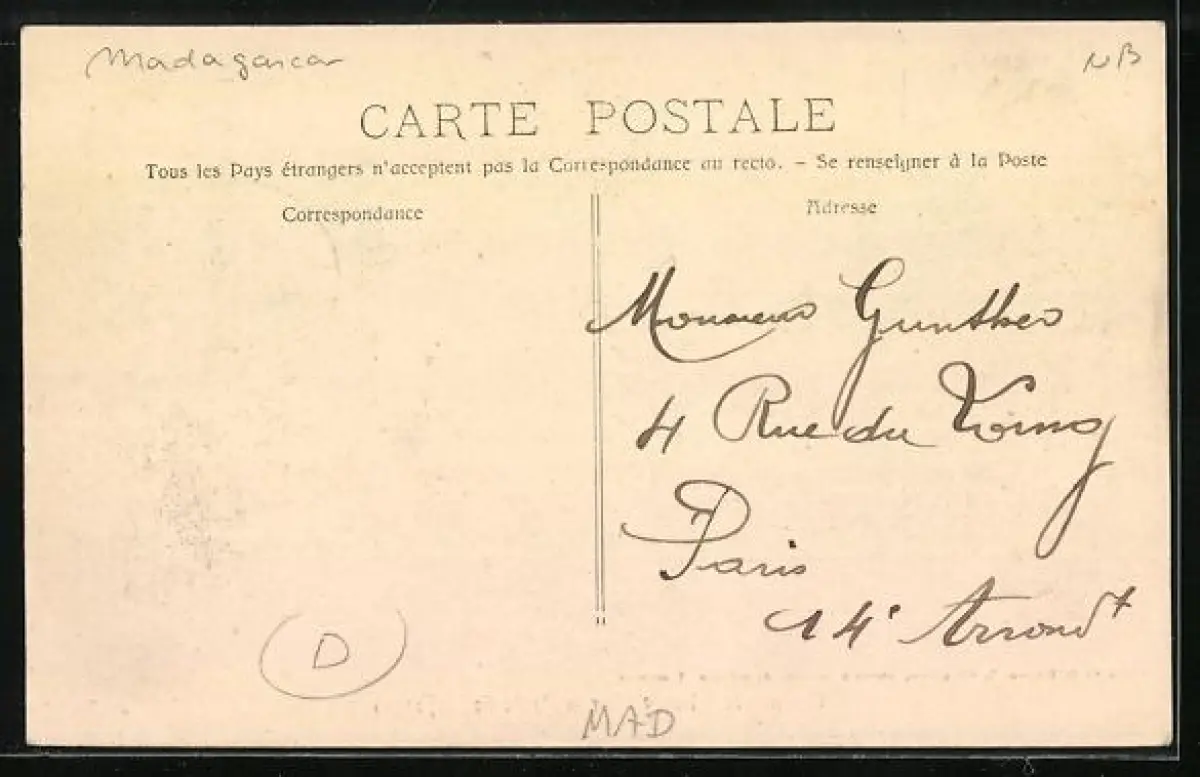 Madagascar
NB
CARTE POSTALE
Tous les Pays étrangers n'acceptent pas la Correspondance au recto. – Se renseigner à la Poste
Correspondance
Adresse
Monsieur Gunther
4 Rue du
Paris
14e Arrondt
D
MAD